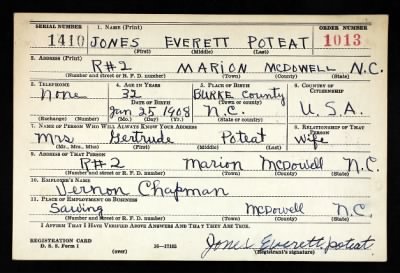 SERIAL NUMBER 1. NAME (Print) ORDER NUMBER
1410 JONES EVERETT POTEAT 1013
(First) (Middle) (Last)
2. ADDRESS (Print)
R#2 MARION MCDOWELL N.C.
(Number and street or R. F. D. number) (Town) (County) (State)
3. TELEPHONE 4. AGE IN YEARS 5. PLACE OF BIRTH 6. COUNTRY OF CITIZENSHIP
None 32 BURKE County
DATE OF BIRTH (Town) (County)
Jan 25 1908 N.C. U.S.A.
(Exchange) (Number) (Mo.) (Day) (Yr.) (State or country)
7. NAME OF PERSON WHO WILL ALWAYS KNOW YOUR ADDRESS 8. RELATIONSHIP OF THAT PERSON
Mrs Gertrude Poteat wife
(Mr., Mrs., Miss) (First) (Middle) (Last)
9. ADDRESS OF THAT PERSON
R#2 Marion McDowell N.C.
(Number and street or R. F. D. number) (Town) (County) (State)
10. EMPLOYER'S NAME
Vernon Chapman
11. PLACE OF EMPLOYMENT OR BUSINESS
Sawing McDowell N.C.
(Number and street or R. F. D. number) (Town) (County) (State)
I AFFIRM THAT I HAVE VERIFIED ABOVE ANSWERS AND THAT THEY ARE TRUE.
REGISTRATION CARD
D. S. S. Form 1 (over) 16—17105 Jones Everett poteat
(Registrant's signature)